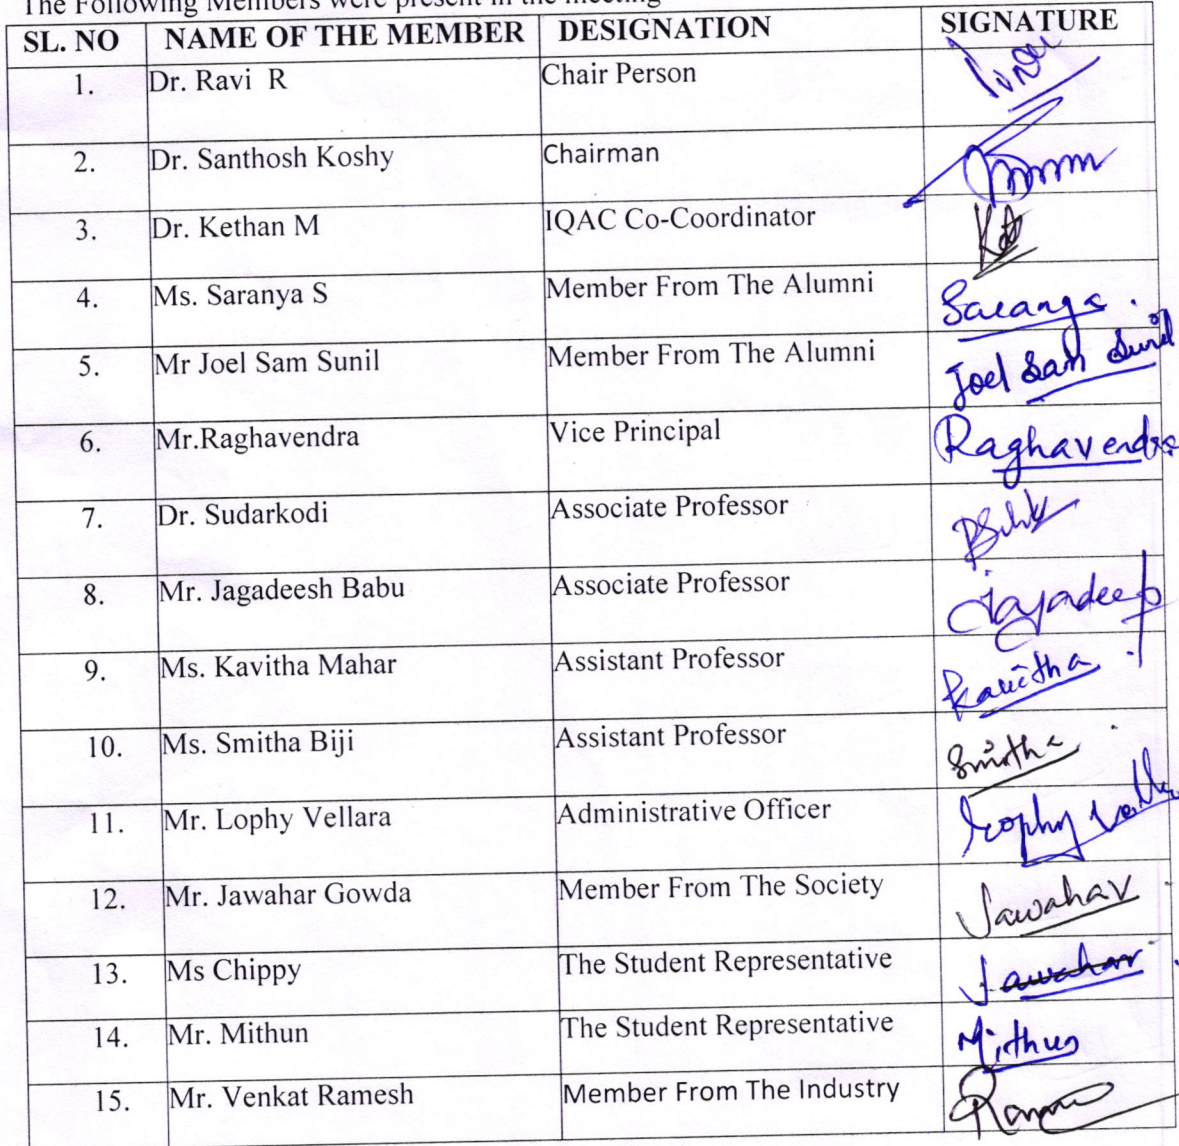 The Following Members were present in the meeting
SL. NO NAME OF THE MEMBER DESIGNATION SIGNATURE
1. Dr. Ravi R Chair Person
2. Dr. Santhosh Koshy Chairman
3. Dr. Kethan M IQAC Co-Coordinator
4. Ms. Saranya S Member From The Alumni
5. Mr Joel Sam Sunil Member From The Alumni Joel Sam Sunil
6. Mr.Raghavendra Vice Principal Raghavendra
7. Dr. Sudarkodi Associate Professor
8. Mr. Jagadeesh Babu Associate Professor
9. Ms. Kavitha Mahar Assistant Professor Kavitha
10. Ms. Smitha Biji Assistant Professor Smitha
11. Mr. Lophy Vellara Administrative Officer Lophy
12. Mr. Jawahar Gowda Member From The Society Jawahar
13. Ms Chippy The Student Representative Jawahar
14. Mr. Mithun The Student Representative Mithun
15. Mr. Venkat Ramesh Member From The Industry